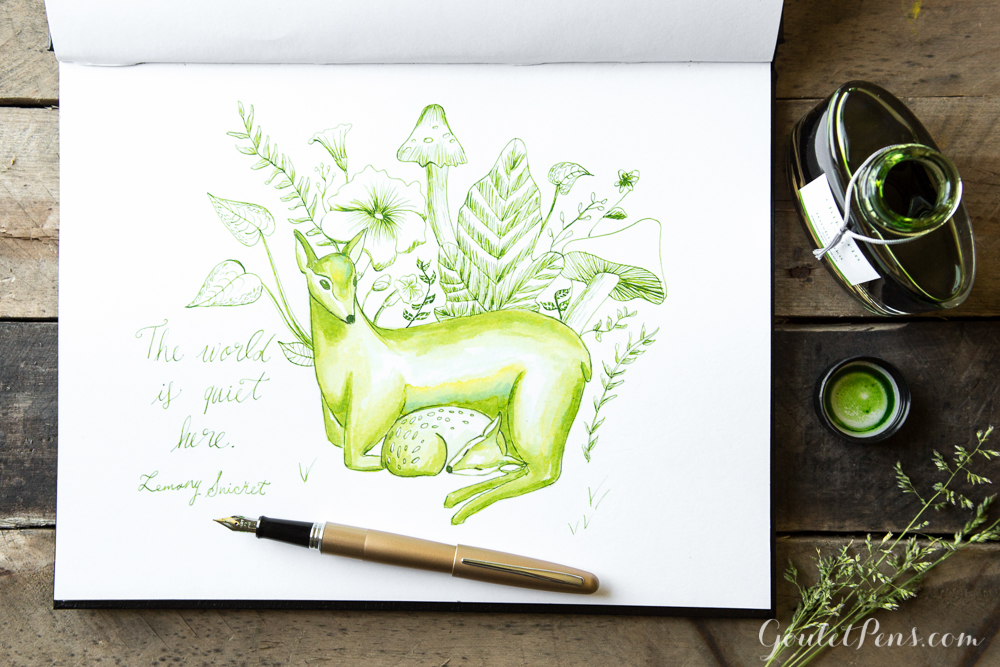 The world
is quiet
here.
Lemony Snicket
GouletPens.com